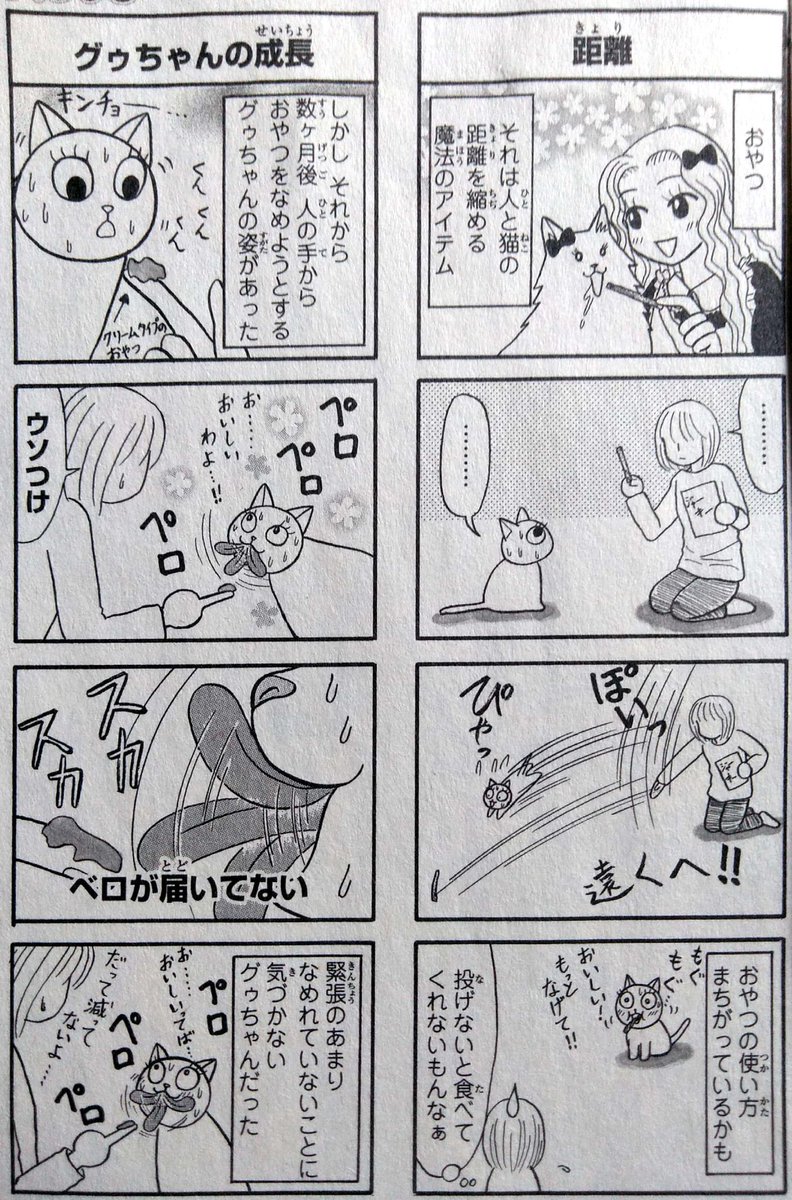 距離
おやつ
それは人と猫の
距離を縮める
魔法のアイテム
………
………
ジャーキー
ぽいっ
ぴやっ
遠くへ!!
おやつの使い方
まちがっているかも
もぐ
もぐ
おいしい!
もっと
なげて!!
投げないと食べて
くれないもんなぁ
グゥちゃんの成長
しかし それから
数ヶ月後 人の手から
おやつをなめようとする
グゥちゃんの姿があった
キンチョー…
くん
くん
くん
クリームタイプの
おやつ
ペロ
ペロ
お……
おいしい
わよ…!!
ペロ
ウソつけ
スカ
スカ
ベロが届いてない
緊張のあまり
なめれていないことに
気づかない
グゥちゃんだった
ペロ
お……
おいしいってば…
ペロ
だって減って
ないよ…
ペロ